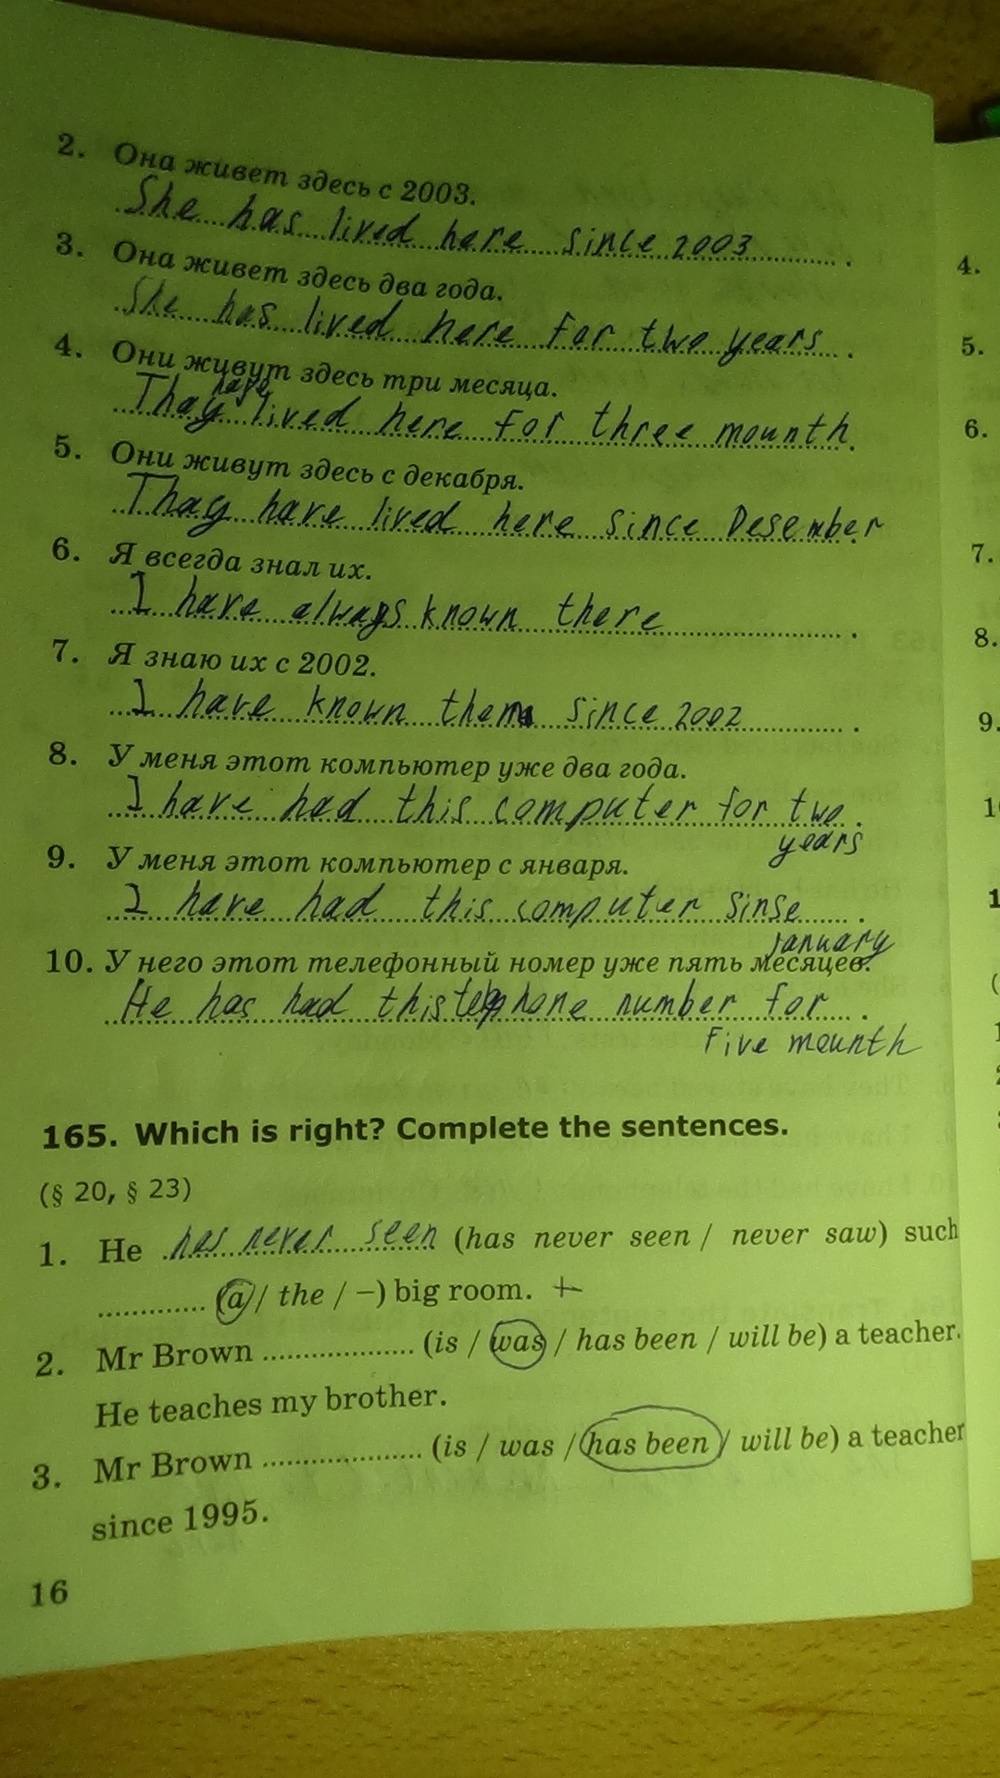 2. Она живет здесь с 2003.
She has lived here since 2003.
3. Она живет здесь два года.
She has lived here for two years.
4. Они живут здесь три месяца.
have
Thay lived here for three mounth.
5. Они живут здесь с декабря.
Thay have lived here since Desember
6. Я всегда знал их.
I have always known there.
7. Я знаю их с 2002.
I have known them since 2002.
8. У меня этот компьютер уже два года.
I have had this computer for two.
years
9. У меня этот компьютер с января.
I have had this computer sinse.
january
10. У него этот телефонный номер уже пять месяцев.
He has had this telephone number for.
Five mounth
165. Which is right? Complete the sentences.
(§ 20, § 23)
1. He has never seen (has never seen / never saw) such
............. (a / the / –) big room. +
2. Mr Brown .................. (is / was / has been / will be) a teacher.
He teaches my brother.
3. Mr Brown .................. (is / was / has been / will be) a teacher
since 1995.
16
4.
5.
6.
7.
8.
9.